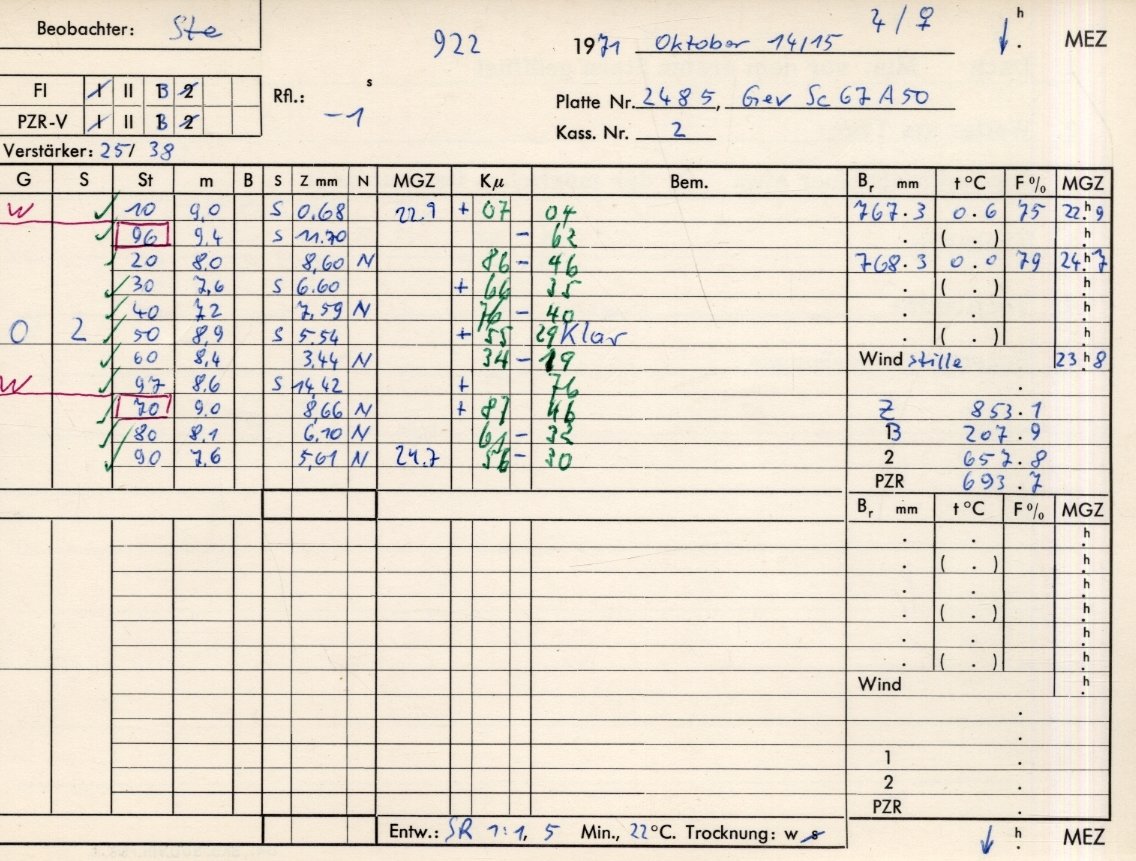 Beobachter: Ste
922 1971 Oktober 14/15 4/♀ h MEZ
FI I II 1 B 2 Rfl.: s −1
Platte Nr. 2485, Gev Sc 67 A 50
PZR-V I II 1 B 2
Kass. Nr. 2
Verstärker: 25/ 38
G S St m B S Z mm N MGZ Kμ Bem. Br mm t °C F % MGZ
W 10 9,0 S 0.68 22.9 + 07 04 767.3 0.6 75 22.h9
96 9.4 S 11.70 − 62 . ( . ) h
20 8.0 8,60 N 86 − 46 768.3 0.0 79 24.h7
30 7,6 S 6.60 + 66 35 . ( . ) h
40 7.2 7,59 N 76 − 40 . . h
0 2 50 8,9 S 5.54 + 55 29 Klar . ( . ) h
60 8,4 3,44 N 34 − 19 Wind stille 23.h8
W 97 8.6 S 14,42 + 76 .
70 9.0 8,66 N + 87 46 Z 853.1
80 8.1 6,10 N 61 − 32 B 207.9
90 7.6 5,61 N 24.7 56 − 30 2 657.8
PZR 693.7
Br mm t °C F % MGZ
. . h
. ( . ) h
. . h
. ( . ) h
. . h
. ( . ) h
Wind h
.
.
1 .
2 .
PZR .
Entw.: SR 1:1, 5 Min., 22°C. Trocknung: w s h MEZ